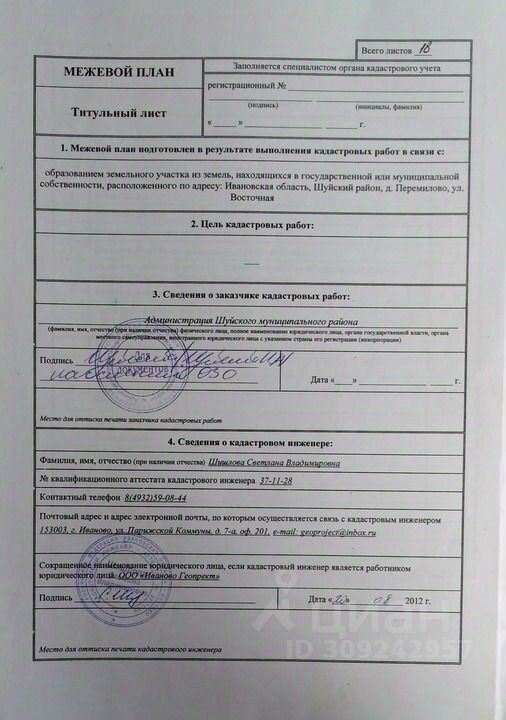 Всего листов 18
МЕЖЕВОЙ ПЛАН
Заполняется специалистом органа кадастрового учета
регистрационный №
(подпись) (инициалы, фамилия)
Титульный лист
« » г.
1. Межевой план подготовлен в результате выполнения кадастровых работ в связи с:
образованием земельного участка из земель, находящихся в государственной или муниципальной
собственности, расположенного по адресу: Ивановская область, Шуйский район, д. Перемилово, ул.
Восточная
2. Цель кадастровых работ:
—
3. Сведения о заказчике кадастровых работ:
Администрация Шуйского муниципального района
(фамилия, имя, отчество (при наличии отчества) физического лица, полное наименование юридического лица, органа государственной власти, органа
местного самоуправления, иностранного юридического лица с указанием страны его регистрации (инкорпорации)
Подпись
Для
ДОКУМЕНТОВ
Дата « » г.
Место для оттиска печати заказчика кадастровых работ
4. Сведения о кадастровом инженере:
Фамилия, имя, отчество (при наличии отчества) Шишлова Светлана Владимировна
№ квалификационного аттестата кадастрового инженера 37-11-28
Контактный телефон 8(4932)59-08-44
Почтовый адрес и адрес электронной почты, по которым осуществляется связь с кадастровым инженером
153003, г. Иваново, ул. Парижской Коммуны, д. 7-а, оф. 201, e-mail: geoproject@inbox.ru
Сокращенное наименование юридического лица, если кадастровый инженер является работником
юридического лица ООО «Иваново Геопроект»
Подпись Дата « » 08 2012 г.
Место для оттиска печати кадастрового инженера
циан
ID 309242957